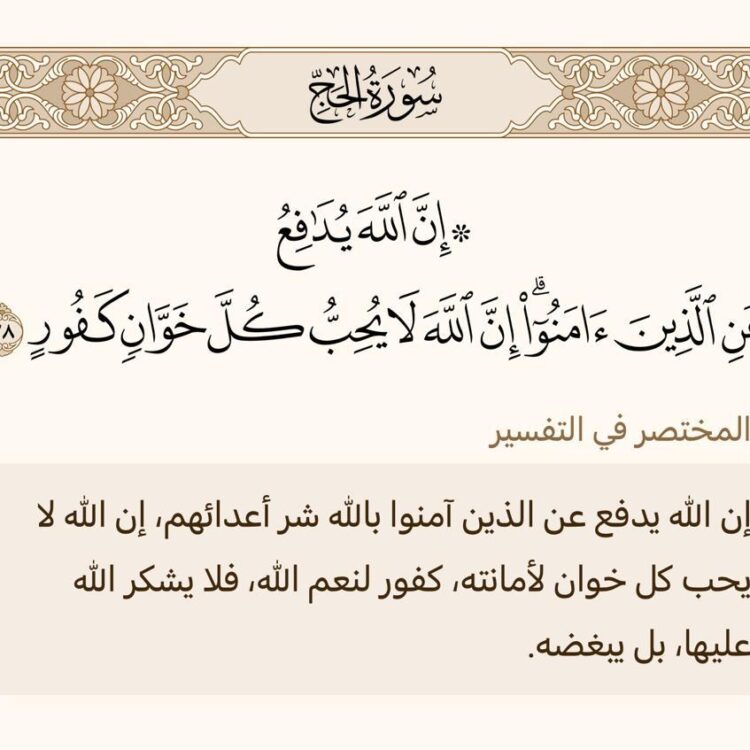 سُورَةُ الحَجِّ
۞ إِنَّ ٱللَّهَ يُدَٰفِعُ
عَنِ ٱلَّذِينَ ءَامَنُوٓا۟ۗ إِنَّ ٱللَّهَ لَا يُحِبُّ كُلَّ خَوَّانٍۢ كَفُورٍ ٣٨
المختصر في التفسير
إن الله يدفع عن الذين آمنوا بالله شر أعدائهم، إن الله لا
يحب كل خوان لأمانته، كفور لنعم الله، فلا يشكر الله
عليها، بل يبغضه.